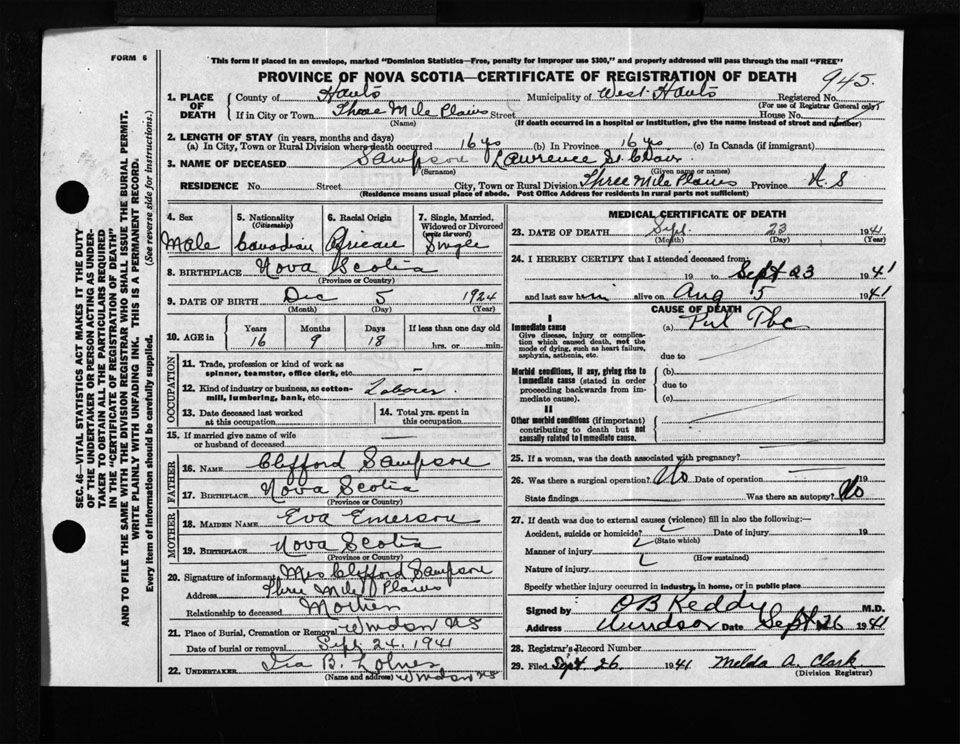 FORM 6
This form if placed in an envelope, marked "Dominion Statistics—Free, penalty for improper use $300," and properly addressed will pass through the mail "FREE"
PROVINCE OF NOVA SCOTIA—CERTIFICATE OF REGISTRATION OF DEATH
945.
1. PLACE OF DEATH
County of Hants Municipality of West Hants Registered No.
(For use of Registrar General only)
If in City or Town Three Mile Plains Street House No.
(Name) (If death occurred in a hospital or institution, give the name instead of street and number)
2. LENGTH OF STAY (in years, months and days)
(a) In City, Town or Rural Division where death occurred 16 yrs (b) In Province 16 yrs (c) In Canada (if immigrant)
3. NAME OF DECEASED Sampson Lawrence St. Clair
(Surname) (Given name or names)
RESIDENCE No. Street City, Town or Rural Division Three Mile Plains Province N.S
(Residence means usual place of abode. Post Office Address for residents in rural parts not sufficient)
4. Sex Male
5. Nationality (Citizenship) Canadian
6. Racial Origin African
7. Single, Married, Widowed or Divorced (write the word) Single
8. BIRTHPLACE Nova Scotia
(Province or Country)
9. DATE OF BIRTH Dec 5 1924
(Month) (Day) (Year)
10. AGE in Years 16 Months 9 Days 18 If less than one day old hrs. or min.
OCCUPATION
11. Trade, profession or kind of work as spinner, teamster, office clerk, etc. —
12. Kind of industry or business, as cotton-mill, lumbering, bank, etc. Laborer.
13. Date deceased last worked at this occupation
14. Total yrs. spent in this occupation
15. If married give name of wife or husband of deceased —
FATHER
16. NAME Clifford Sampson
17. BIRTHPLACE Nova Scotia
(Province or Country)
MOTHER
18. MAIDEN NAME Eva Emerson
19. BIRTHPLACE Nova Scotia
(Province or Country)
20. Signature of informant Mrs Clifford Sampson
Address Three Mile Plains
Relationship to deceased Mother
21. Place of Burial, Cremation or Removal Windsor NS
Date of burial or removal Sept. 24, 1941
22. UNDERTAKER Ira B.
(Name and address) Windsor NS
MEDICAL CERTIFICATE OF DEATH
23. DATE OF DEATH Sept. 23 1941
(Month) (Day) (Year)
24. I HEREBY CERTIFY that I attended deceased from
19 to Sept 23 1941
and last saw him alive on Aug 5 1941
CAUSE OF DEATH
I
Immediate cause
Give disease, injury or complication which caused death, not the mode of dying, such as heart failure, asphyxia, asthenia, etc.
(a) Pul Tbc
due to
Morbid conditions, if any, giving rise to immediate cause (stated in order proceeding backwards from immediate cause).
(b)
due to
(c)
II
Other morbid conditions (if important) contributing to death but not causally related to immediate cause.
25. If a woman, was the death associated with pregnancy?
26. Was there a surgical operation? No Date of operation 19
State findings Was there an autopsy? No
27. If death was due to external causes (violence) fill in also the following:—
Accident, suicide or homicide? Date of injury 19
(State which)
Manner of injury
(How sustained)
Nature of injury
Specify whether injury occurred in industry, in home, or in public place
Signed by O B Keddy M.D.
Address Windsor Date Sept 26 1941
28. Registrar's Record Number
29. Filed Sept. 26 1941 Melda A. Clark
(Division Registrar)
SEC. 46—VITAL STATISTICS ACT MAKES IT THE DUTY
OF THE UNDERTAKER OR PERSON ACTING AS UNDER-
TAKER TO OBTAIN ALL THE PARTICULARS REQUIRED
IN THE "CERTIFICATE OF REGISTRATION OF DEATH"
AND TO FILE THE SAME WITH THE DIVISION REGISTRAR WHO SHALL ISSUE THE BURIAL PERMIT.
WRITE PLAINLY WITH UNFADING INK. THIS IS A PERMANENT RECORD.
Every item of information should be carefully supplied. (See reverse side for instructions.)